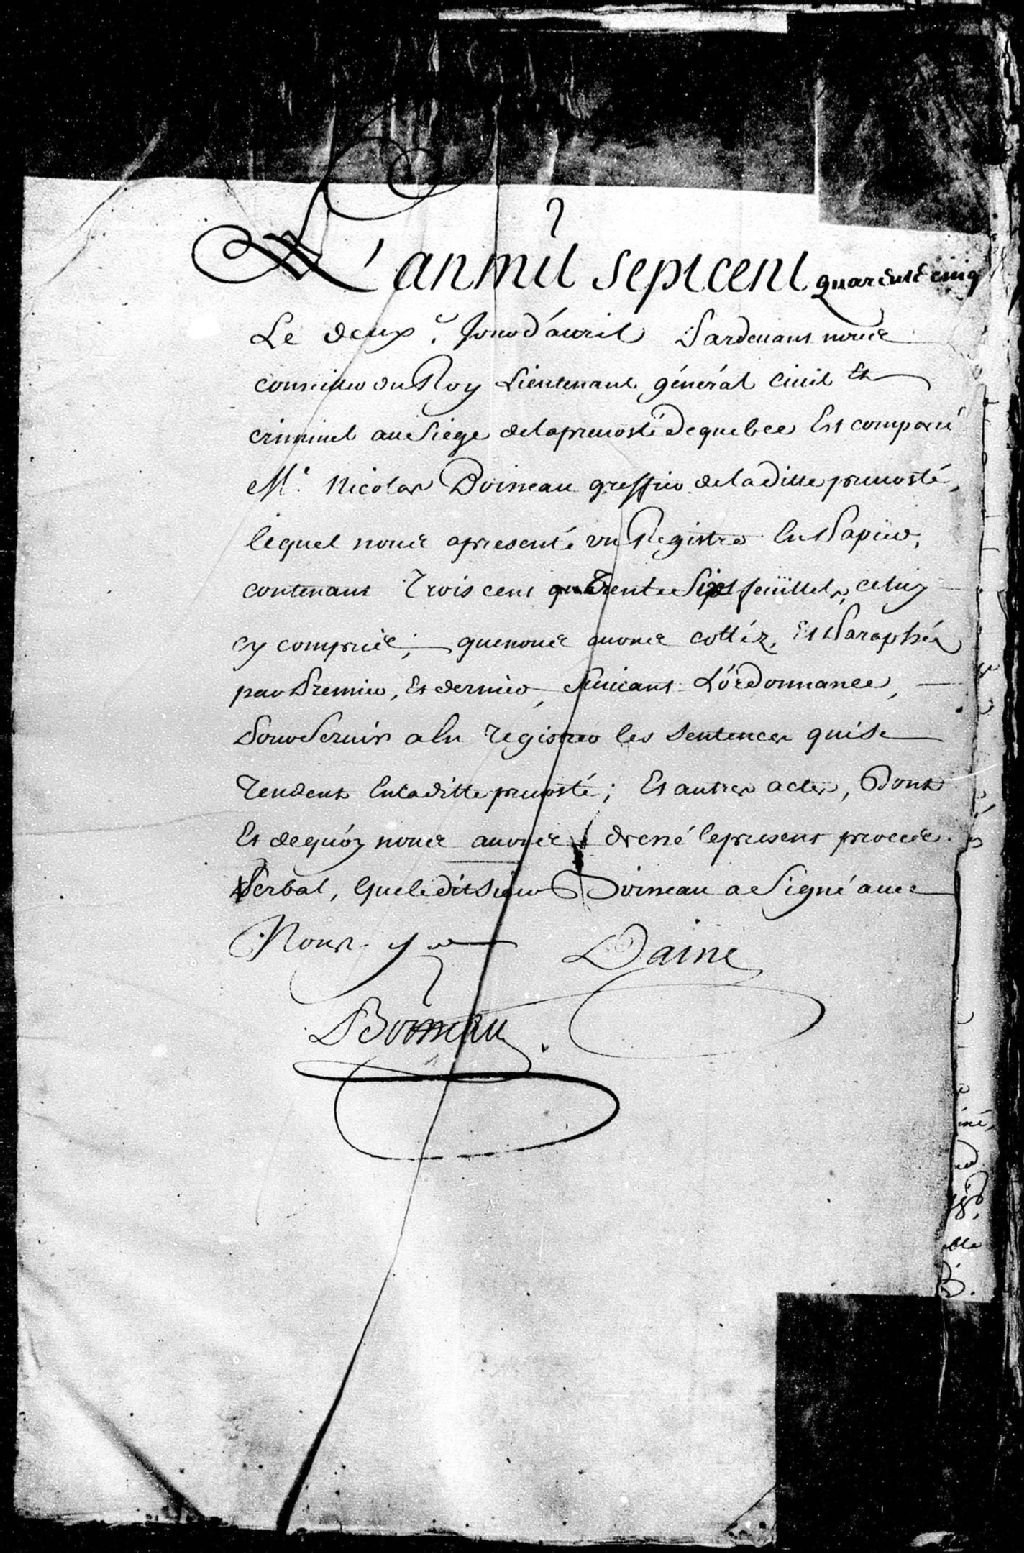 L'an mil sept cent quarente cinq
Le deux.e Jour d'avril Pardevant nous
conseiller du Roy Lieutenant général civil Et
criminel au Siege de la prevosté de quebec Est comparu
M.e Nicolas Boisseau greffier de la ditte prevosté,
lequel nous a presenté un Registre En Papier,
contenant Trois cent trente Six feüillets, celuy
cy compris; que nous avons cottéz, Et Paraphés
par Premier, Et dernier, Suivant L'ordonnance,
Pour Servir a En registrer les Sentences qui Se
rendent En la ditte prevosté; Et autres actes, Dont
Et de quoy nous avons dressé le present procés
Verbal, Que le dit Sieur Boisseau a Signé avec
Nous.
Daine
Boisseau